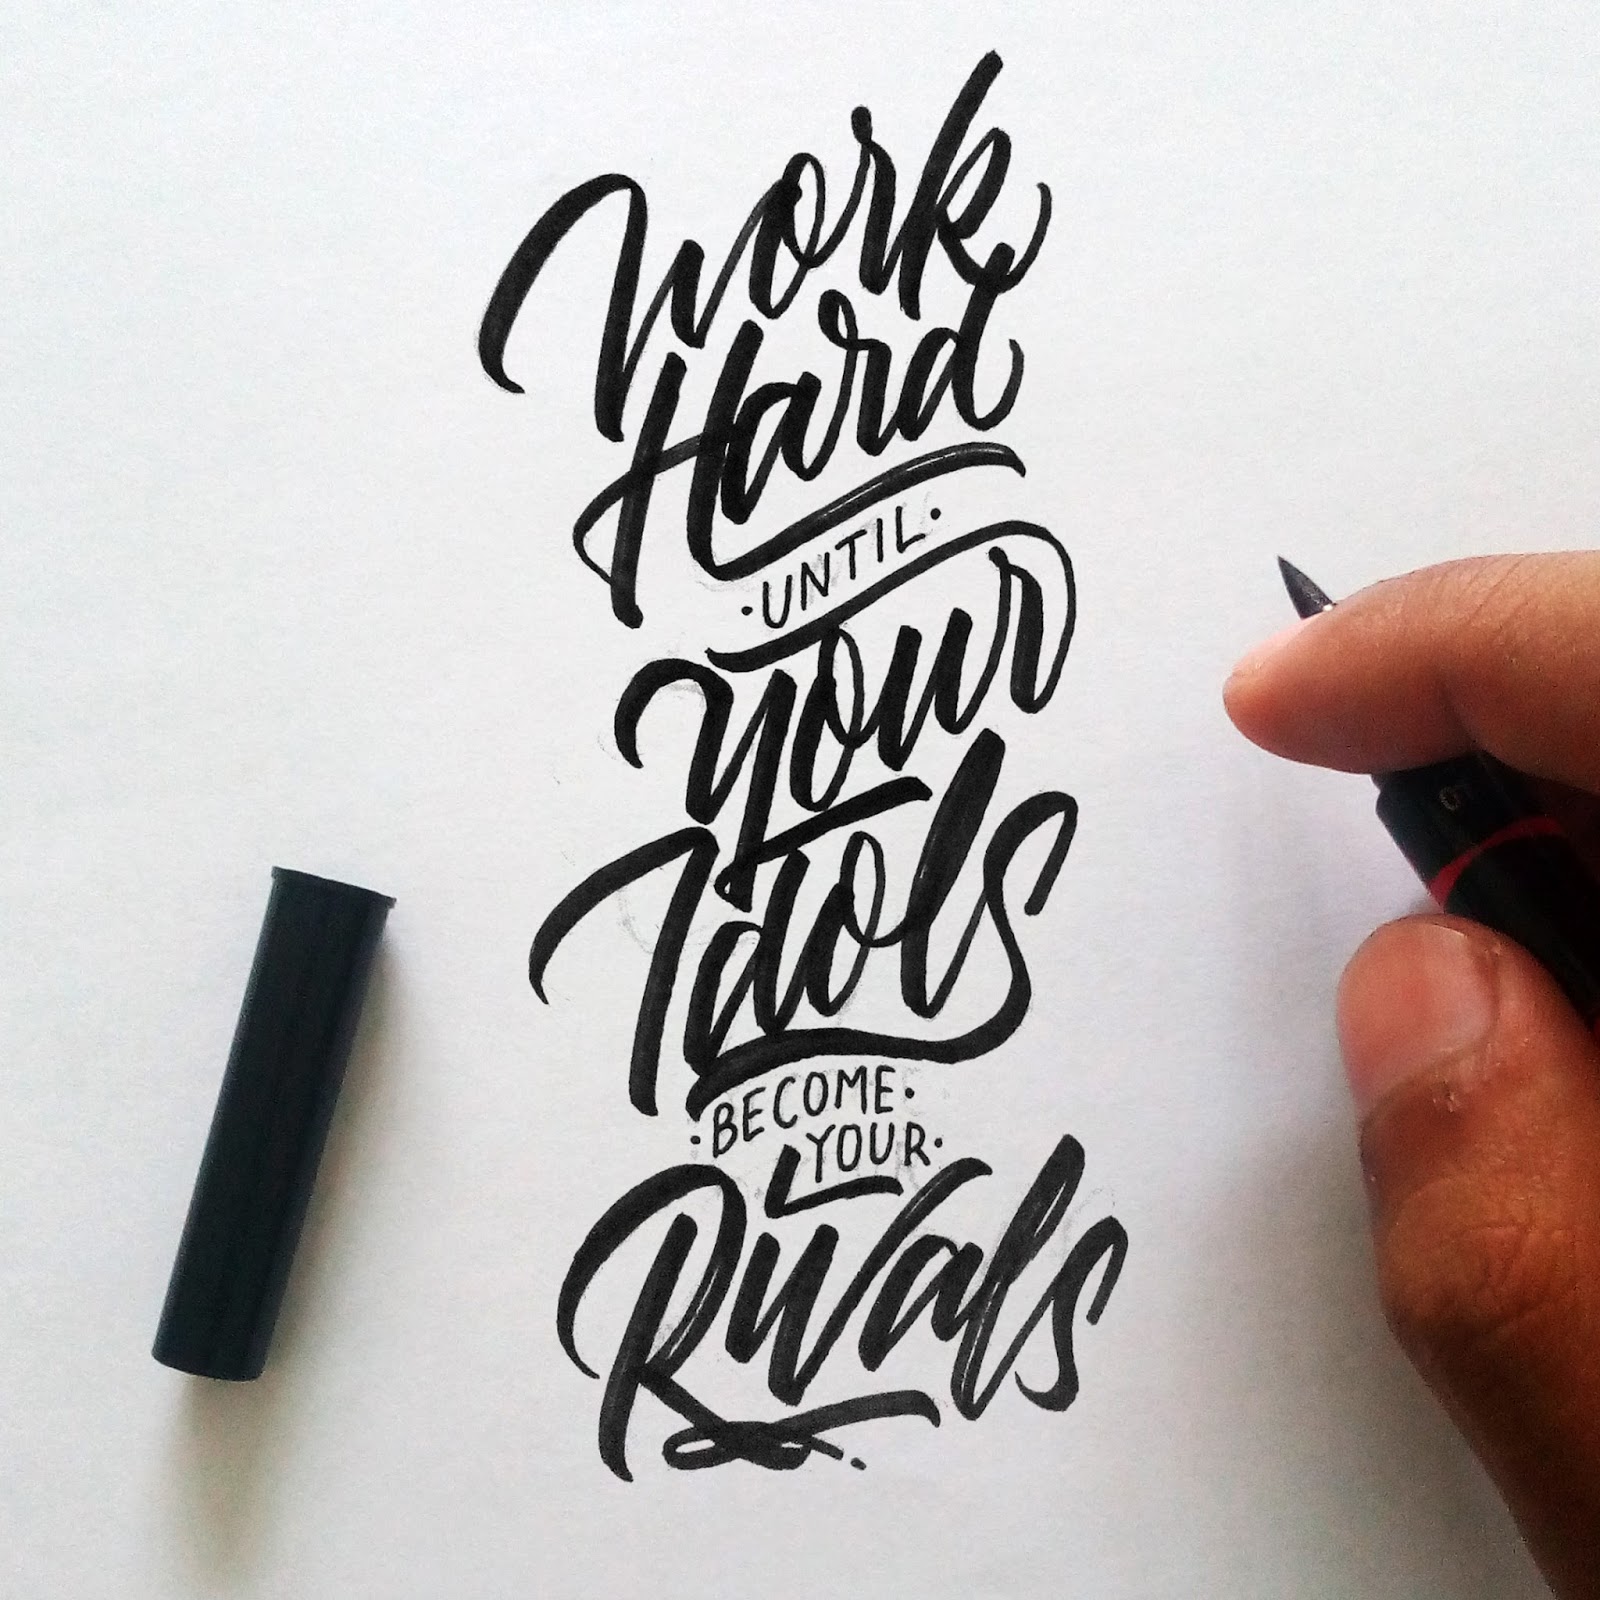 Work
Hard
·UNTIL·
Your
Idols
·BECOME·
YOUR·
Rivals